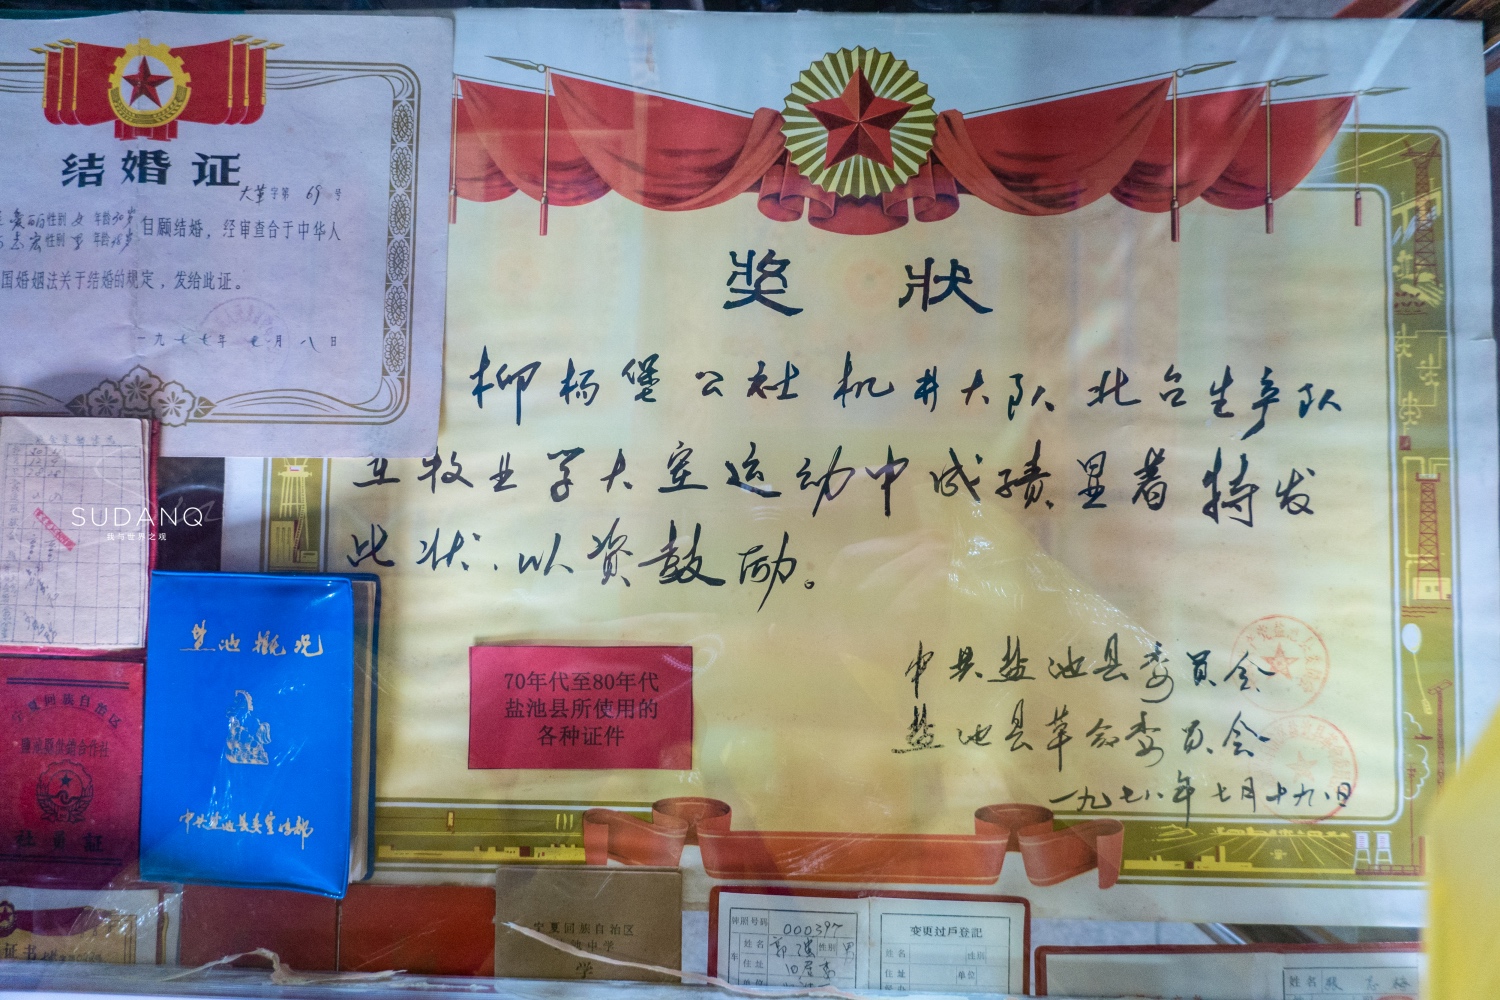 结婚证
大革字第 69 号
爱丽性别女 年龄20岁
志宏性别男 年龄
自愿结婚，经审查合于中华人
国婚姻法关于结婚的规定，发给此证。
一九七七年 七月 八日
奖状
柳杨堡公社机井大队北台生产队
在牧业学大寨运动中成绩显著特发
此状.以资鼓励。
中共盐池县委员会
盐池县革命委员会
一九七八年七月十九日
SUDANQ
我与世界之观
盐池概况
中共盐池县委宣传部
70年代至80年代
盐池县所使用的
各种证件
宁夏回族自治区
供销合作社
社员证
证书
宁夏回族自治区
池中学
学
号码 000397
姓名 郭强 性别 男
住址
单位
变更过戶登記
姓名 性别
住址 单位
姓名 张志梅